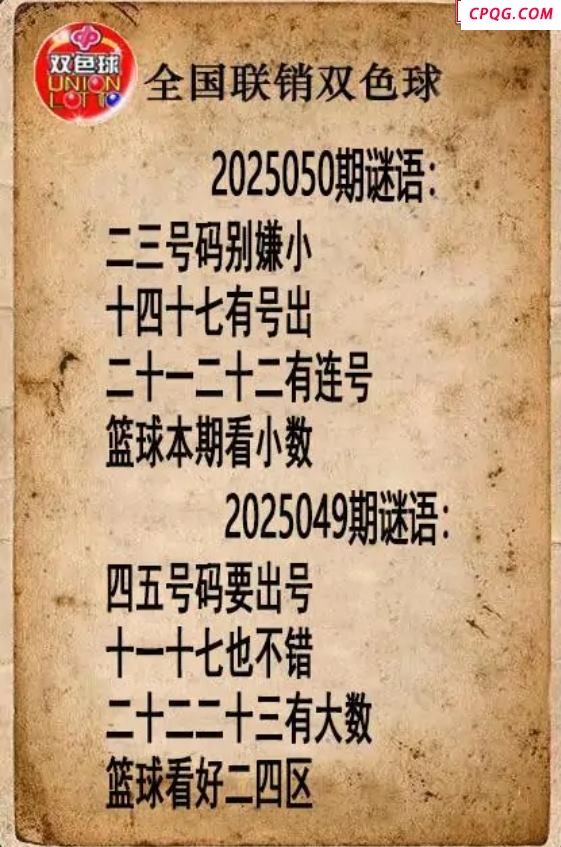 CPQG.COM
双色球
UNION
LOTTO
全国联销双色球
2025050期谜语：
二三号码别嫌小
十四十七有号出
二十一二十二有连号
篮球本期看小数
2025049期谜语：
四五号码要出号
十一十七也不错
二十二二十三有大数
篮球看好二四区